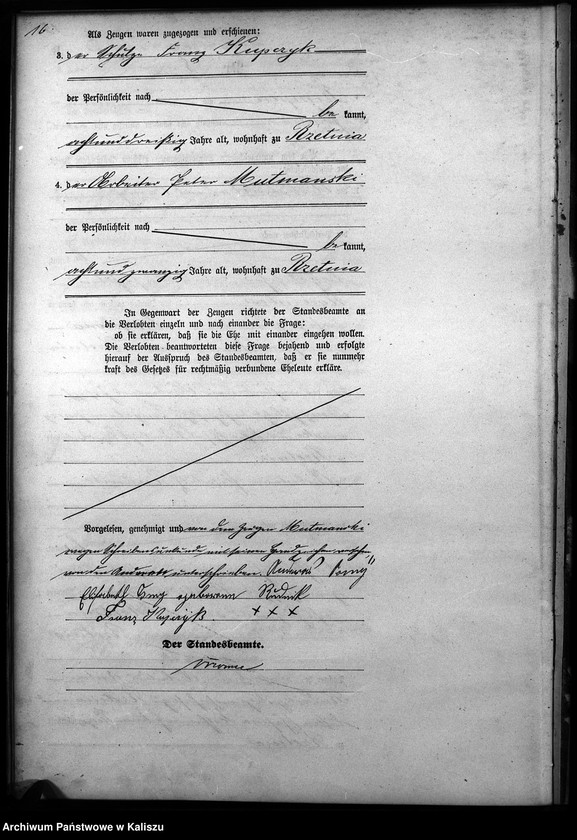 16.
Als Zeugen waren zugezogen und erschienen:
3. der Schulze Franz Kupczyk
der Persönlichkeit nach
be kannt,
achtunddreißig Jahre alt, wohnhaft zu Rzetnia
4. der Arbeiter Peter Mutmanski
der Persönlichkeit nach
be kannt,
achtundzwanzig Jahre alt, wohnhaft zu Rzetnia
In Gegenwart der Zeugen richtete der Standesbeamte an
die Verlobten einzeln und nach einander die Frage:
ob sie erklären, daß sie die Ehe mit einander eingehen wollen.
Die Verlobten beantworteten diese Frage bejahend und erfolgte
hierauf der Ausspruch des Standesbeamten, daß er sie nunmehr
kraft des Gesetzes für rechtmäßig verbundene Eheleute erkläre.
Vorgelesen, genehmigt und von dem Zeugen Mutmanski
wegen Schreibensunkunde mit seinem Handzeichen versehen
von den unterschrieben.
geborene Rudnik
Franz Kupczyk. + + +
Der Standesbeamte.
Archiwum Państwowe w Kaliszu